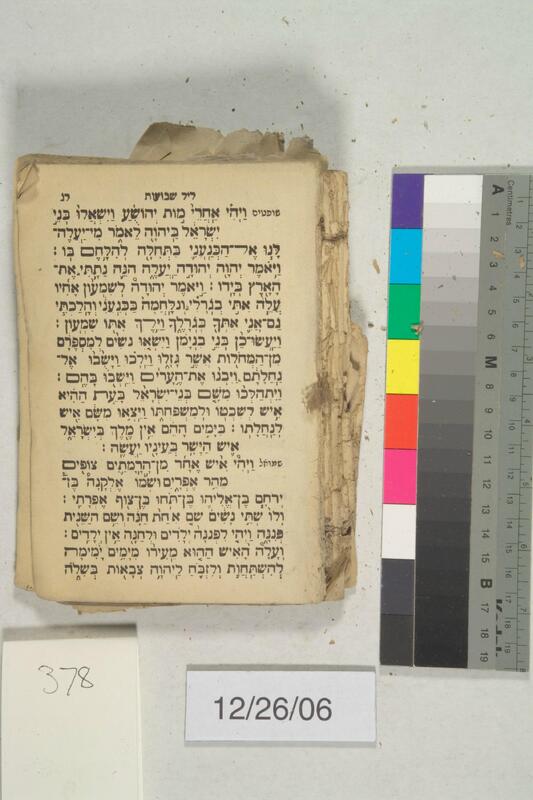 ליל שבועות לג
שופטים וַיְהִי אַחֲרֵי מוֹת יְהוֹשֻׁעַ וַיִּשְׁאֲלוּ בְּנֵי
יִשְׂרָאֵל בַּיהוָֹה לֵאמֹר מִי־יַעֲלֶה־
לָּנוּ אֶל־הַכְּנַעֲנִי בַּתְּחִלָּה לְהִלָּחֶם בּוֹ:
וַיֹּאמֶר יְהוָה יְהוּדָה יַעֲלֶה הִנֵּה נָתַתִּי אֶת־
הָאָרֶץ בְּיָדוֹ: וַיֹּאמֶר יְהוּדָה לְשִׁמְעוֹן אָחִיו
עֲלֵה אִתִּי בְגֹרָלִי וְנִלָּחֲמָה בַּכְּנַעֲנִי וְהָלַכְתִּי
גַם־אֲנִי אִתְּךָ בְּגֹרָלֶךָ וַיֵּלֶךְ אִתּוֹ שִׁמְעוֹן:
וַיַּעֲשׂוּ־כֵן בְּנֵי בִנְיָמִן וַיִּשְׂאוּ נָשִׁים לְמִסְפָּרָם
מִן־הַמְּחֹלְלוֹת אֲשֶׁר גָּזָלוּ וַיֵּלְכוּ וַיָּשׁוּבוּ אֶל־
נַחֲלָתָם וַיִּבְנוּ אֶת־הֶעָרִים וַיֵּשְׁבוּ בָּהֶם:
וַיִּתְהַלְּכוּ מִשָּׁם בְּנֵי־יִשְׂרָאֵל בָּעֵת הַהִיא
אִישׁ לְשִׁבְטוֹ וּלְמִשְׁפַּחְתּוֹ וַיֵּצְאוּ מִשָּׁם אִישׁ
לְנַחֲלָתוֹ: בַּיָּמִים הָהֵם אֵין מֶלֶךְ בְּיִשְׂרָאֵל
אִישׁ הַיָּשָׁר בְּעֵינָיו יַעֲשֶׂה:
שמואל וַיְהִי אִישׁ אֶחָד מִן־הָרָמָתַיִם צוֹפִים
מֵהַר אֶפְרָיִם וּשְׁמוֹ אֶלְקָנָה בֶּן־
יְרֹחָם בֶּן־אֱלִיהוּא בֶּן־תֹּחוּ בֶן־צוּף אֶפְרָתִי:
וְלוֹ שְׁתֵּי נָשִׁים שֵׁם אַחַת חַנָּה וְשֵׁם הַשֵּׁנִית
פְּנִנָּה וַיְהִי לִפְנִנָּה יְלָדִים וּלְחַנָּה אֵין יְלָדִים:
וְעָלָה הָאִישׁ הַהוּא מֵעִירוֹ מִיָּמִים יָמִימָה
לְהִשְׁתַּחֲוֹת וְלִזְבֹּחַ לַיהוָֹה צְבָאוֹת בְּשִׁלֹה
Centimetres
A 1 2 3 4 5 6 M 8 9 10 11 12 13 14 15 B 17 18 19
378
12/26/06